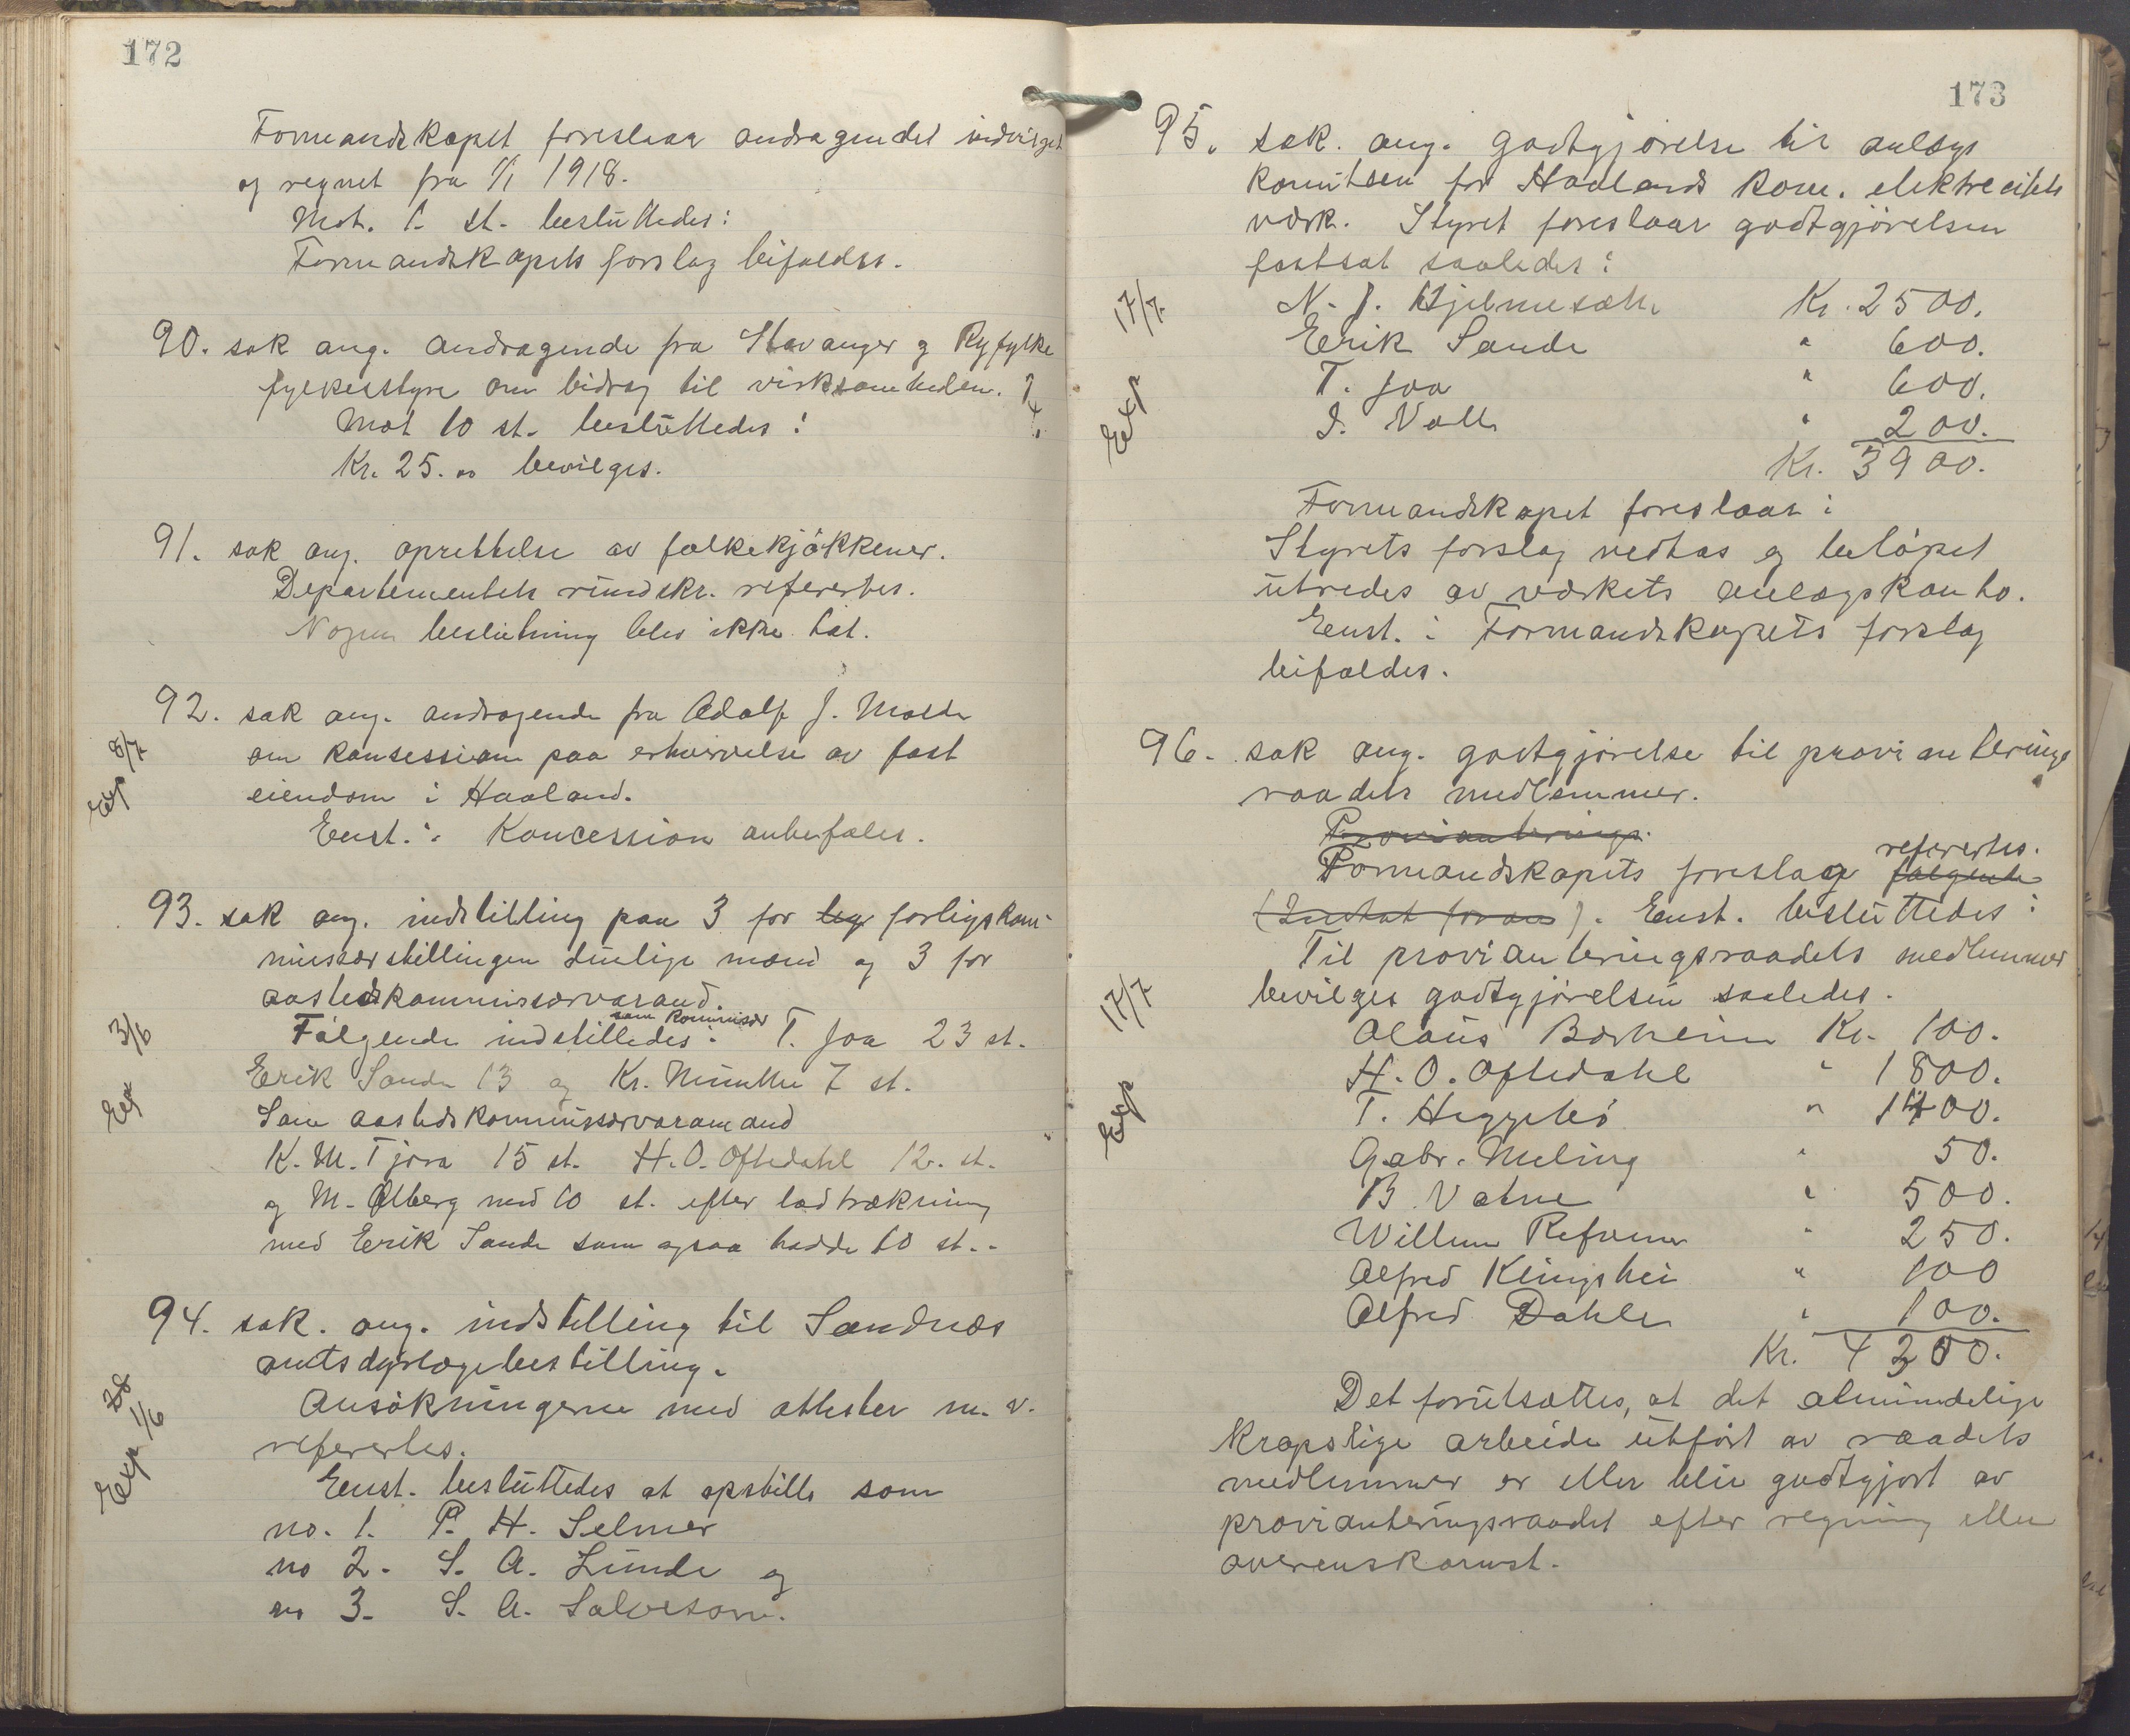 172
Formandskapet foreslaar andragendet indvilget
og regnet fra 1/1 1918.
Mot. 1 st. besluttedes:
Formandskapets forslag bifaldes.
90. sak ang. andragende fra Stavanger og Ryfylke
fylkesstyre om bidrag til virksomheden.
Mot 10 st. besluttedes:
Kr. 25.00 bevilges.
91. sak ang. oprettelse av folkekjøkkener.
Departementets rundskr. refertes.
Nogen beslutning blev ikke tat.
92. sak ang. andragende fra Adolf J. Molde
8/7
om konsession paa erhvervelse av fast
Exp
eiendom i Haaland.
Enst.: Koncession anbefales.
93. sak ang. indstilling paa 3 for forligskom-
missærstillingen duelige mænd og 3 for
aastedskommissærvarand.
3/6
Følgende indstilledes som kommisær: T. Joa 23 st.
Exp
Erik Sande 13 og Kr. Nunthe 7 st.
Som aastedskommissærvaramand
K. M. Tjora 15 st. H. O. Oftedahl 12. st.
og M. Ølberg med 10 st. efter lodtrækning
med Erik Sande som ogsaa hadde 10 st..
94. sak. ang. indstilling til Sandnæs
amtsdyrlægebestilling.
28
1/6
Exp
Ansökningerne med attester m. v.
refertes.
Enst. besluttedes at opstille som
no. 1. P. H. Selmer
no 2. S. A. Lunde og
no 3. S. A. Salvesom.
173
95. sak. ang. godtgjørelse til anlægs
komiteen for Haalands kom. elektrecitets
værk. Styret foreslaar godtgjørelsen
fastsat saaledes:
17/7
N. J. Hjelmesæth Kr. 2500.
Erik Sande " 600.
Exp
T. Joa " 600.
J. Voll " 200.
Kr. 3900.
Formandskapet foreslaar:
Styrets forslag vedtas og beløpet
utredes av værkets anlægskonto.
Enst.: Formandskapets forslag
bifaldes.
96. sak ang. godtgjørelse til provianterings
raadets medlemmer.
Provianterings
Formandskapets forslag følgende refertes.
(Indtat foran). Enst. besluttedes:
Til provianteringsraadets medlemmer
17/7
bevilges godtgjørelsen saaledes.
Exp
Olaus Borheim Kr. 100.
H. O. Oftedahl " 1800.
T. Heggebø " 1400.
Gabr. Meling " 50.
B. Vatne " 500.
Willum Refsnes " 250.
Alfred Klingshei " 100
Alfred Dahle " 100.
Kr. 4300.
Det forutsættes, at det almindelige
kropslige arbeide utført av raadets
medlemmer er eller blir godtgjort av
provianteringsraadet efter regning eller
overenskomst.